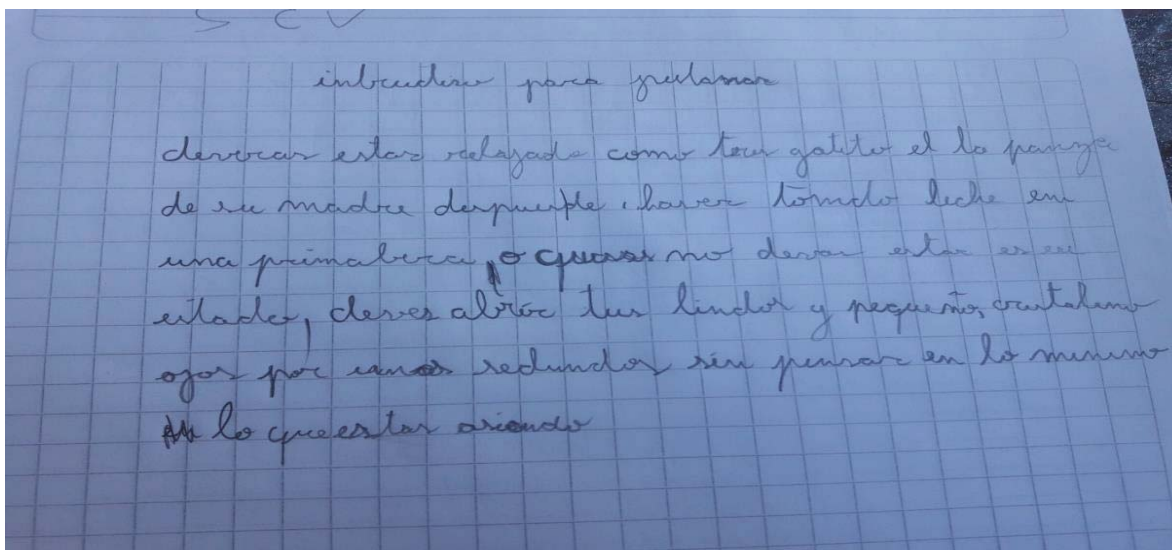 para
deveras estar relajado como tou gatito el la panza
de su madre despuesde haver tomado leche en
una primabera, o quisas no devas estar es ese
estado, deves abrir tus lindos y pequeños cristalino
ojos por redundos sin pensar en lo minimo
lo que estas asiendo